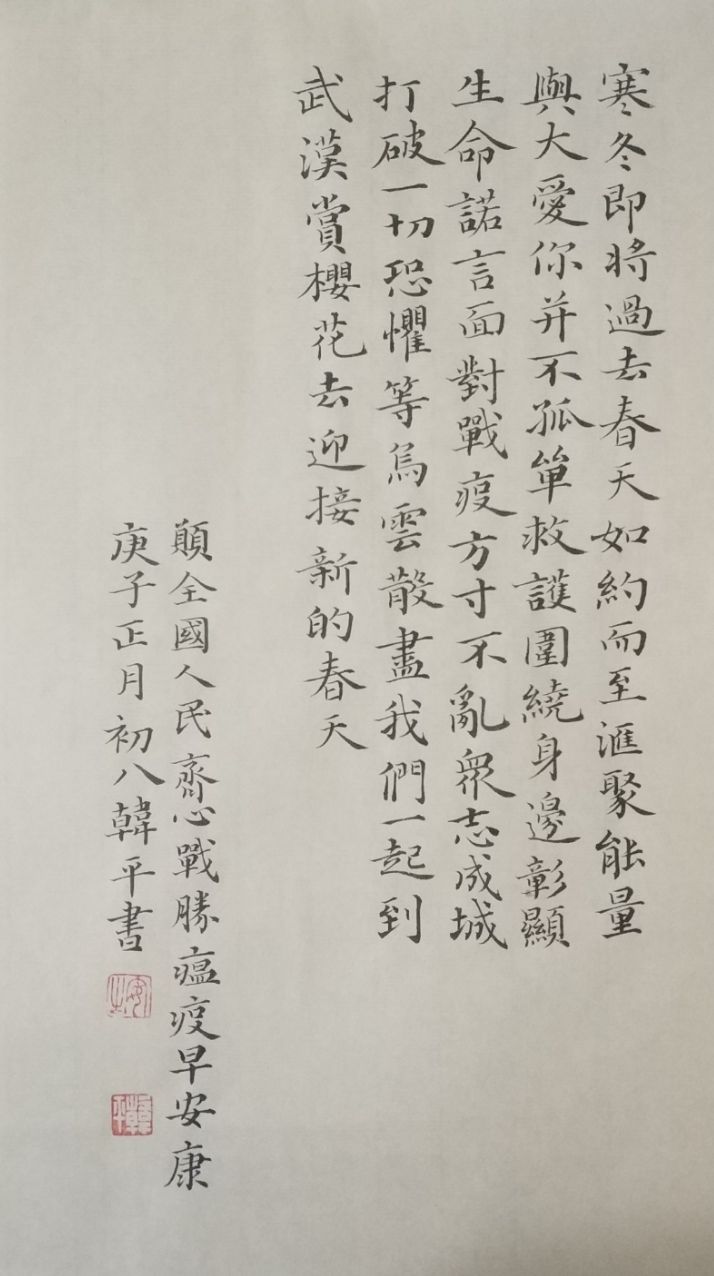 寒冬即將過去春天如約而至滙聚能量
與大愛你并不孤單救護圍繞身邊彰顯
生命諾言面對戰疫方寸不亂衆志成城
打破一切恐懼等烏雲散盡我們一起到
武漢賞櫻花去迎接新的春天
願全國人民齋心戰勝瘟疫早安康
庚子正月初八韓平書
韓平